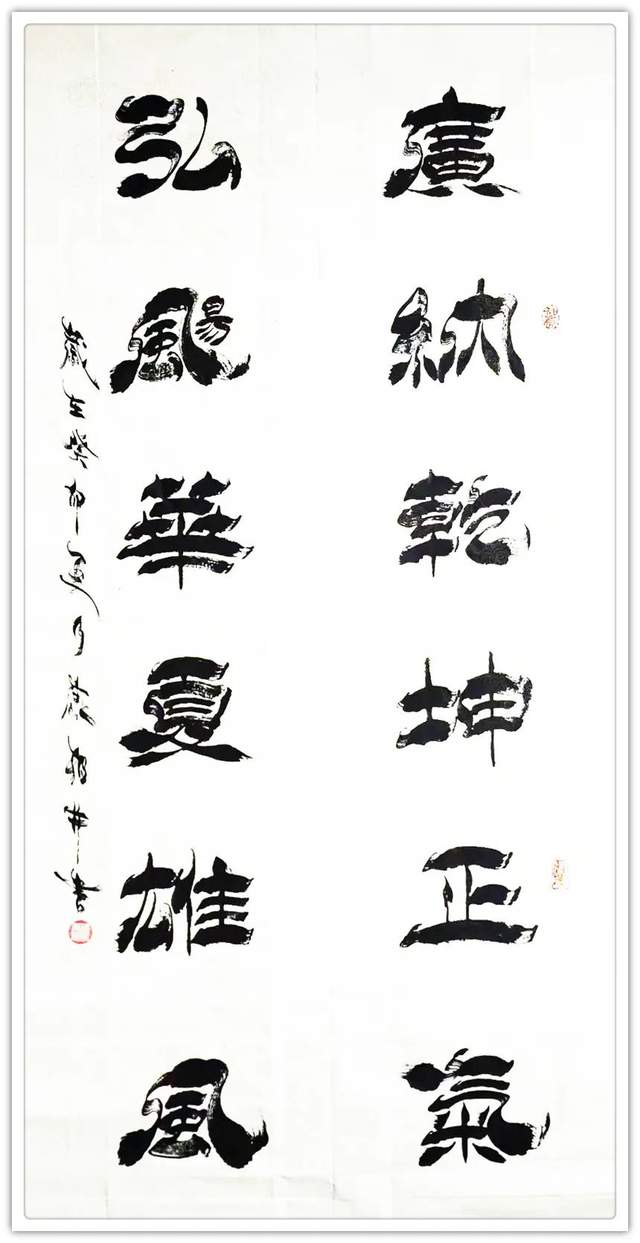 廣納乾坤正氣
弘颺華夏雄風
歲在癸卯夏月書